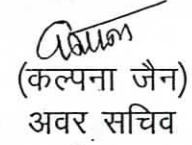 (कल्पना जैन)
अवर सचिव